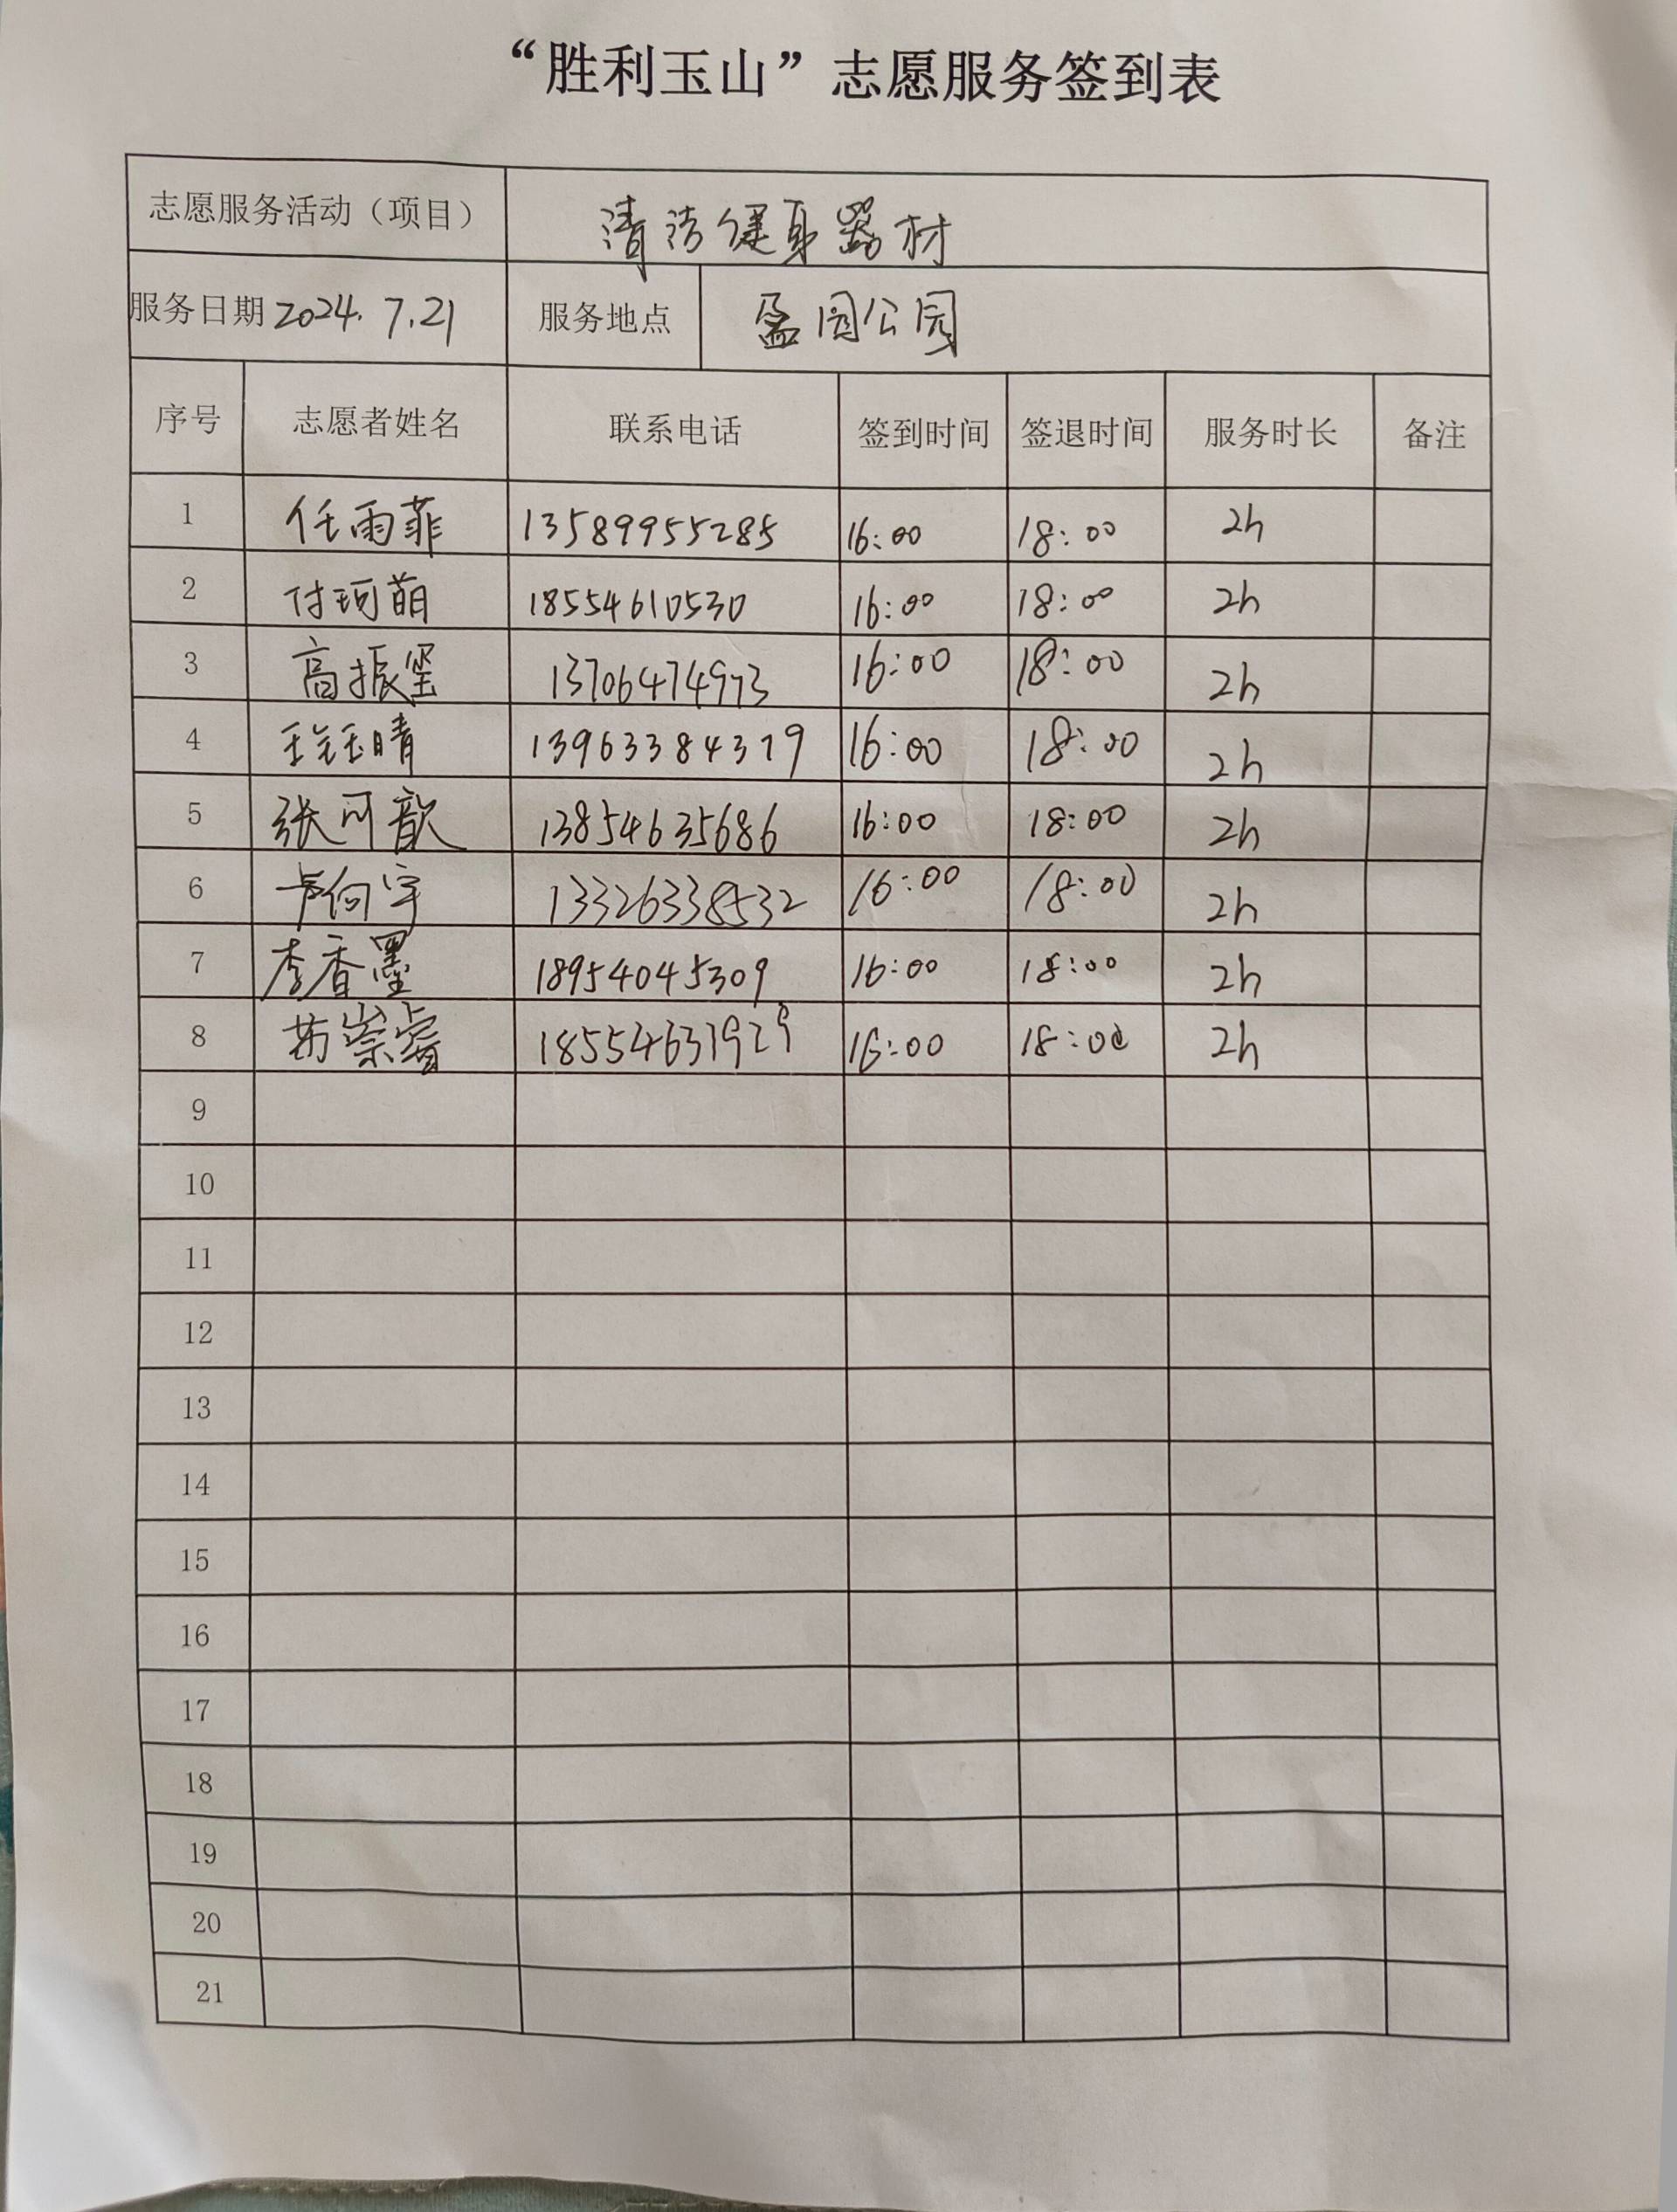 “胜利玉山”志愿服务签到表
志愿服务活动（项目） 清洁健身器材
服务日期 2024.7.21 服务地点 盈园公园
序号 志愿者姓名 联系电话 签到时间 签退时间 服务时长 备注
1 任雨菲 13589955285 16:00 18:00 2h
2 付珂萌 18554610530 16:00 18:00 2h
3 高振玺 13706474973 16:00 18:00 2h
4 13963384379 16:00 18:00 2h
5 张可歆 13854635686 16:00 18:00 2h
6 13326338532 16:00 18:00 2h
7 李香墨 18954045309 16:00 18:00 2h
8 18554637929 16:00 18:00 2h
9
10
11
12
13
14
15
16
17
18
19
20
21